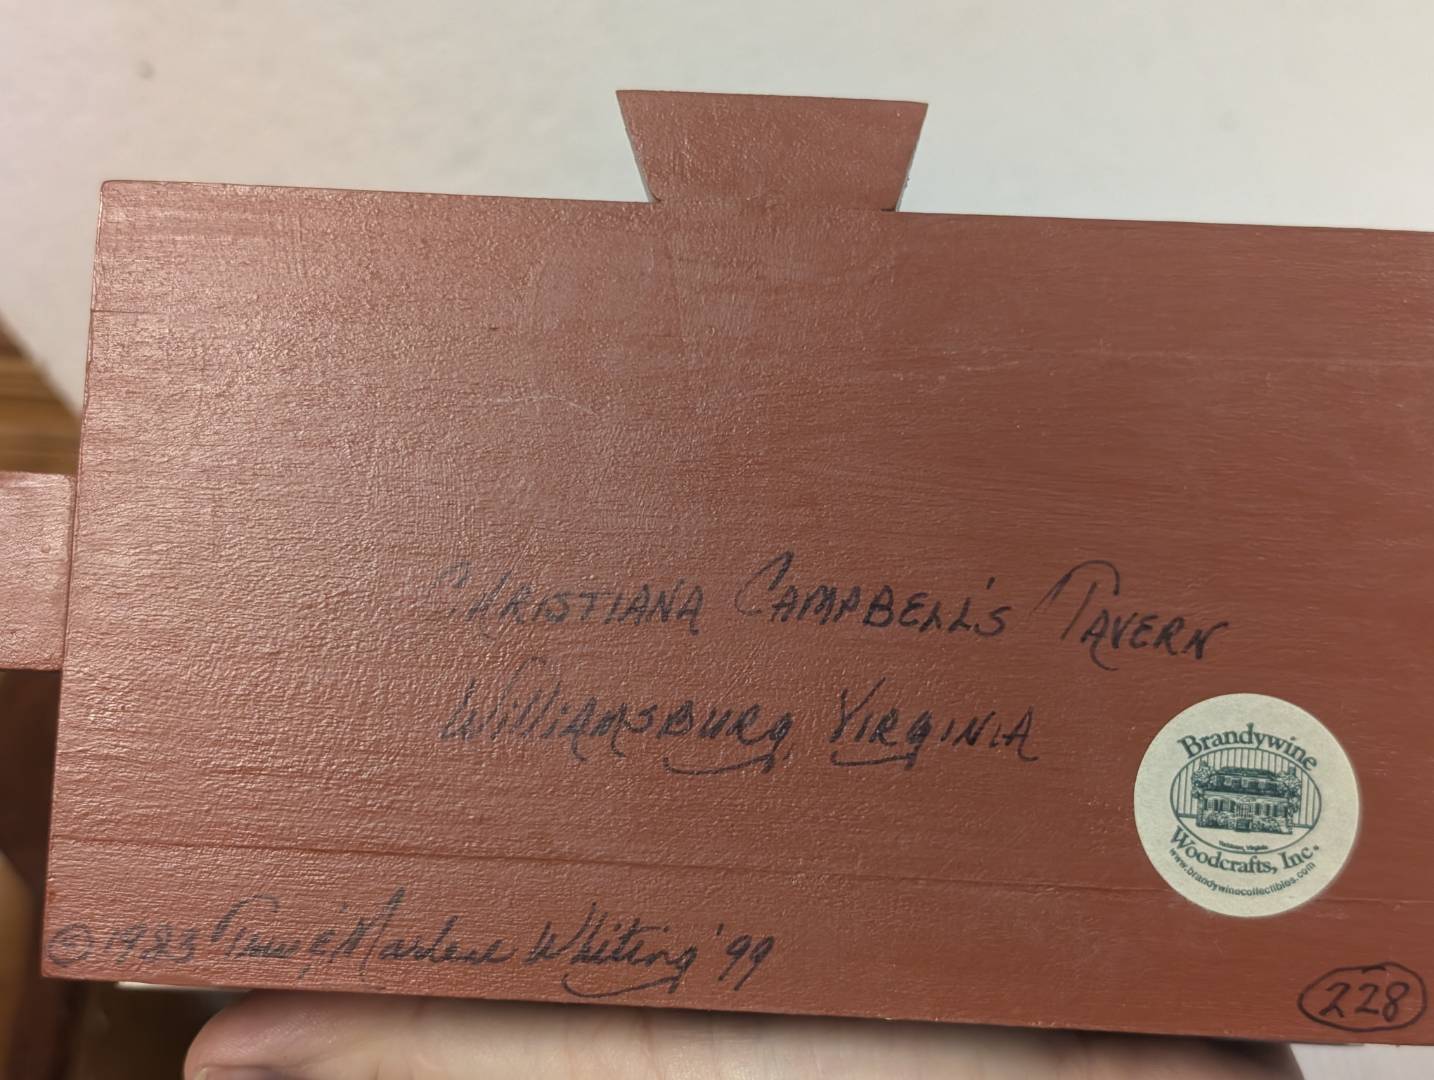 CHRISTIANA CAMPBELL'S TAVERN
WILLIAMSBURG, VIRGINIA
Brandywine
Woodcrafts, Inc.
www.brandywinecollectibles.com
© 1983 & Marlene Whiting '99
228